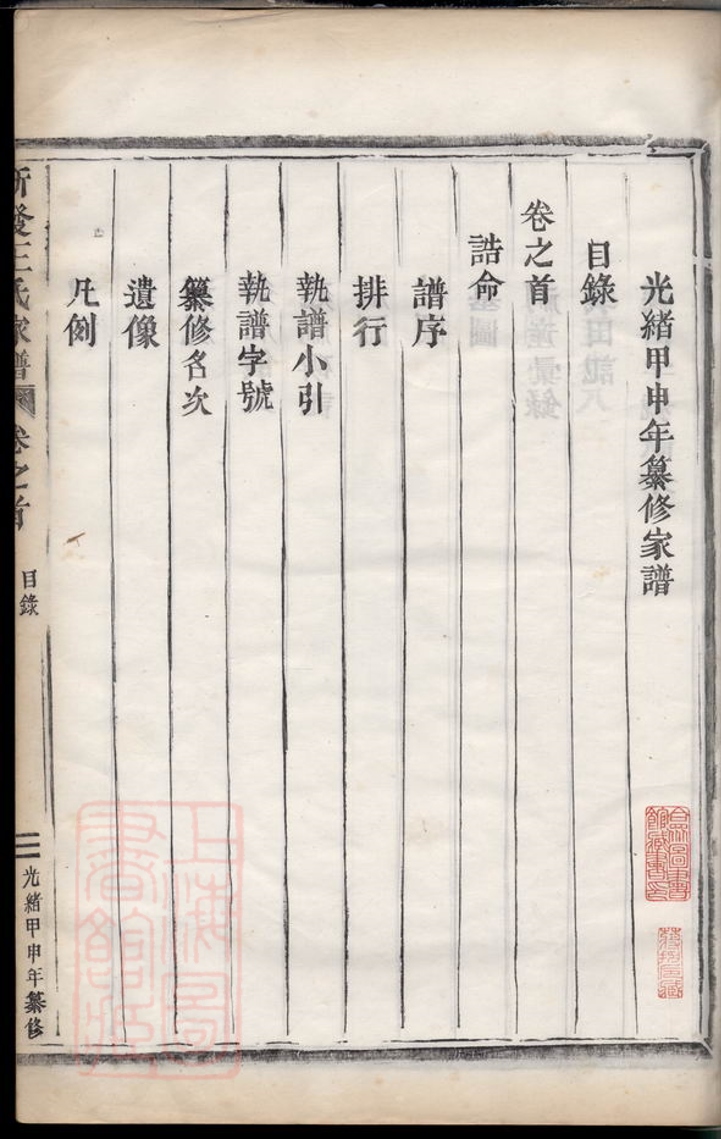 光緒甲申年纂修家譜
目錄
卷之首
誥命
譜序
排行
執譜小引
執譜字號
纂修名次
遺像
凡例
王氏家譜
卷之首
目錄
二
光緒甲申年纂修
上海圖書館藏